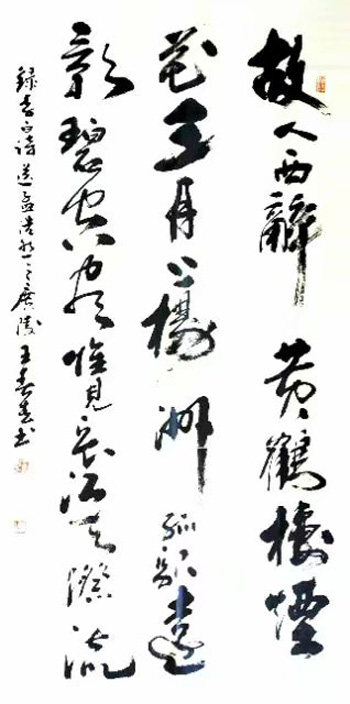 故人西辭黄鶴樓煙
花三月下楊州孤帆遠
影碧空盡惟見長江天際流
錄李白詩送孟浩然之廣陵 王春書